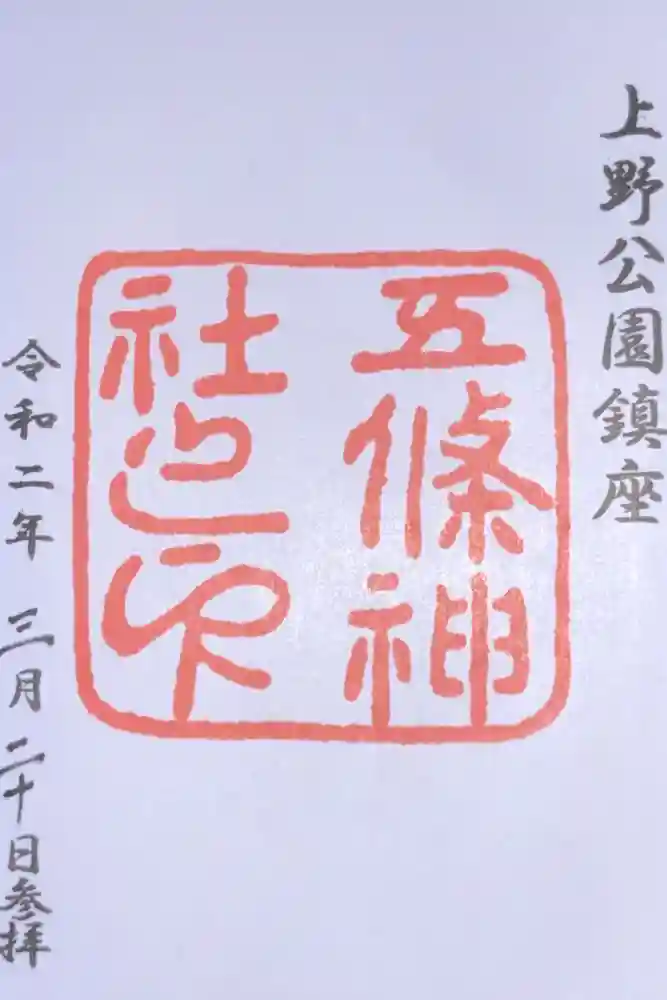 上野公園鎮座
五條神
社之印
令和二年 三月 二十日参拝